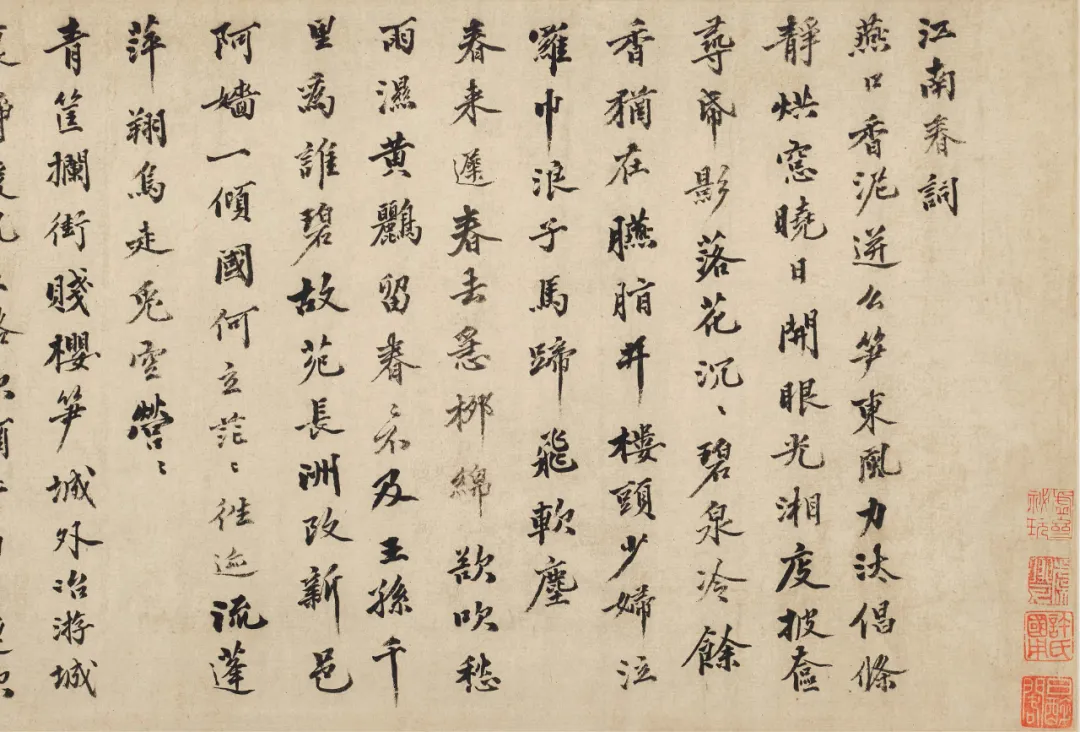 江南春詞
燕口香泥迸幺笋東風力汰倡條
靜烘窓曉日開眼光湘度披奩
尋影落花沉〻碧泉冷餘
香猶在臙脂井樓頭少婦泣
羅巾浪子馬蹄飛軟塵
春来遲春去急柳綿欲吹愁
雨濕黄鸝留春〻不及王孫千
里為誰碧故苑長洲改新邑
阿嬙一傾國何立茫〻往迹流蓬
萍翔烏走兎空營〻
青筐攔街賤櫻笋城外冶游城